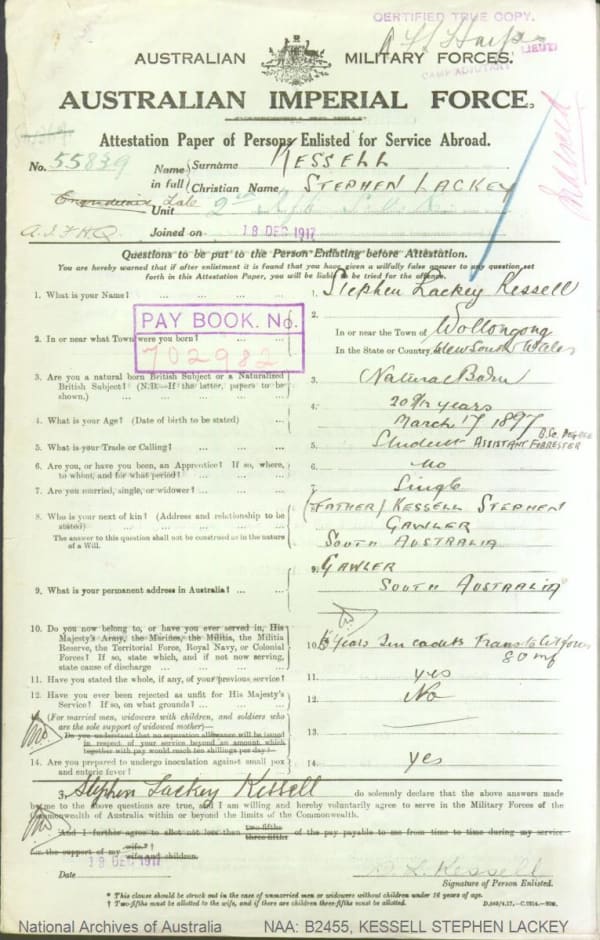 CERTIFIED TRUE COPY.
LIEUT
CAMP ADJUTANT
AUSTRALIAN MILITARY FORCES.
AUSTRALIAN IMPERIAL FORCE.
Attestation Paper of Persons Enlisted for Service Abroad.
No. 55839
Name in full { Surname KESSELL
Christian Name STEPHEN LACKEY
Unit 2nd
A.I.F.H.Q. Joined on 18 DEC 1917
Questions to be put to the Person Enlisting before Attestation.
You are hereby warned that if after enlistment it is found that you have given a wilfully false answer to any question set
forth in this Attestation Paper, you will be liable to be tried for the offence.
1. What is your Name? ... 1. Stephen Lackey Kessell
PAY BOOK. No.
702982
2. In or near what Town were you born? ... 2. In or near the Town of Wollongong
In the State or Country New South Wales
3. Are you a natural born British Subject or a Naturalized
British Subject? (N.B.—If the latter, papers to be
shown.) ... 3. Natural Born
4. What is your Age? (Date of birth to be stated) ... 4. 20 9/12 years
March 17 1897
5. What is your Trade or Calling? ... 5. Student ASSISTANT FORRESTER B.Sc. DEGREE
6. Are you, or have you been, an Apprentice? If so, where,
to whom, and for what period? ... 6. No
7. Are you married, single, or widower? ... 7. Single
8. Who is your next of kin? (Address and relationship to be
stated) ... (FATHER) KESSELL STEPHEN
GAWLER
SOUTH AUSTRALIA
The answer to this question shall not be construed as in the nature
of a Will.
9. What is your permanent address in Australia? ... 9. GAWLER
SOUTH AUSTRALIA
10. Do you now belong to, or have you ever served in, His
Majesty's Army, the Marines, the Militia, the Militia
Reserve, the Territorial Force, Royal Navy, or Colonial
Forces? If so, state which, and if not now serving,
state cause of discharge ... 10. years Sen cadets Trans to Cit forces
80 mf
11. Have you stated the whole, if any, of your previous service? 11. yes
12. Have you ever been rejected as unfit for His Majesty's
Service? If so, on what grounds? ... 12. No
(For married men, widowers with children, and soldiers who
are the sole support of widowed mother)—
Do you understand that no separation allowance will be issued
in respect of your service beyond an amount which
together with pay would reach ten shillings per day? 13.
14. Are you prepared to undergo inoculation against small pox
and enteric fever? 14. yes
I, Stephen Lackey Kessell do solemnly declare that the above answers made
by me to the above questions are true, and I am willing and hereby voluntarily agree to serve in the Military Forces of the
Commonwealth of Australia within or beyond the limits of the Commonwealth.
And I further agree to allot not less than two-fifths three-fifths of the pay payable to me from time to time during my service
for the support of my wife.*† wife and children.
Date 18 DEC 1917 S. L. Kessell
Signature of Person Enlisted.
* This clause should be struck out in the case of unmarried men or widowers without children under 16 years of age.
† Two-fifths must be allotted to the wife, and if there are children three-fifths must be allotted.
National Archives of Australia NAA: B2455, KESSELL STEPHEN LACKEY